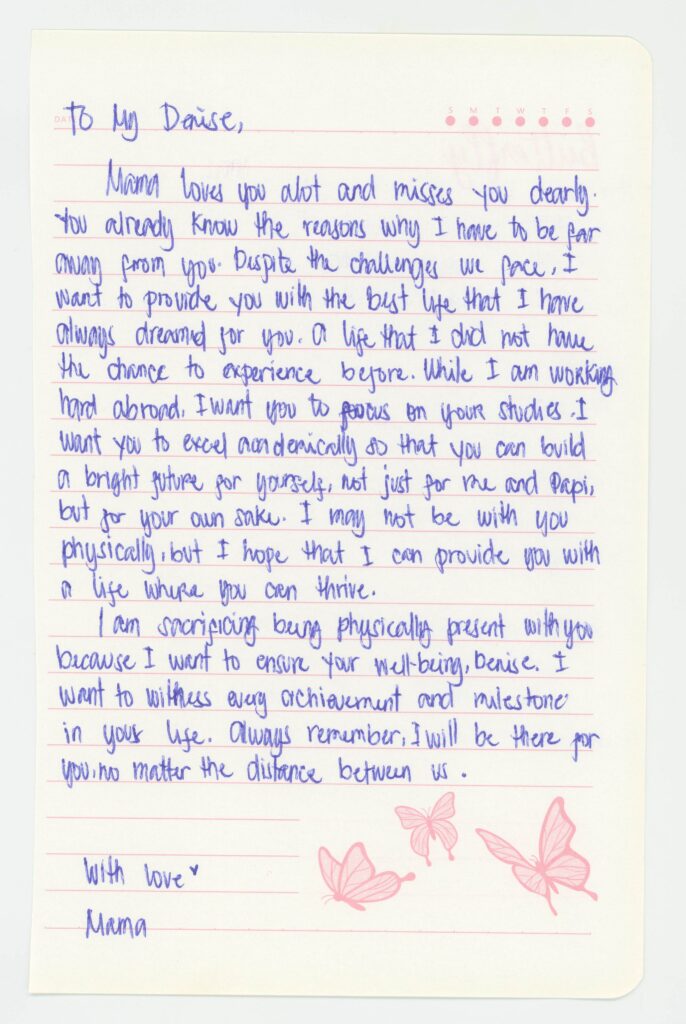 To My Denise,
DATE
S M T W T F S
Mama loves you alot and misses you dearly.
You already know the reasons why I have to be far
away from you. Despite the challenges we face, I
want to provide you with the best life that I have
always dreamed for you. A life that I did not have
the chance to experience before. While I am working
hard abroad, I want you to focus on your studies. I
want you to excel academically so that you can build
a bright future for yourself, not just for me and Papi,
but for your own sake. I may not be with you
physically, but I hope that I can provide you with
a life where you can thrive.
I am sacrificing being physically present with you
because I want to ensure your well-being, Denise. I
want to witness every achievement and milestone
in your life. Always remember, I will be there for
you, no matter the distance between us.
With love ♥
Mama